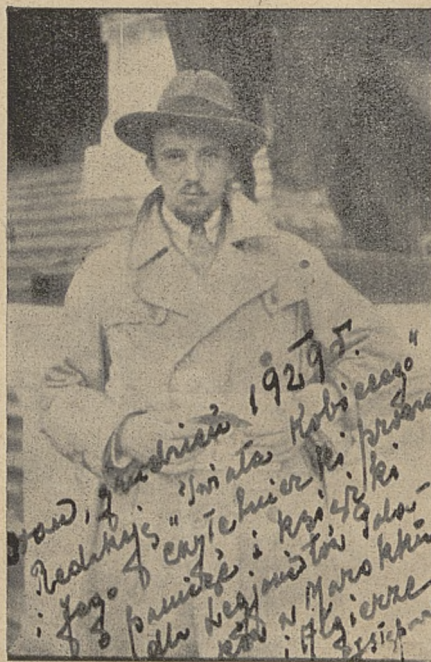 grudzień 1929 r.
Redakcję „Świata Kobiecego”
i jego czytelniczki proszę
o pamięć i książki
dla Legjonistów Pola-
ków w Marokku
i Algierze